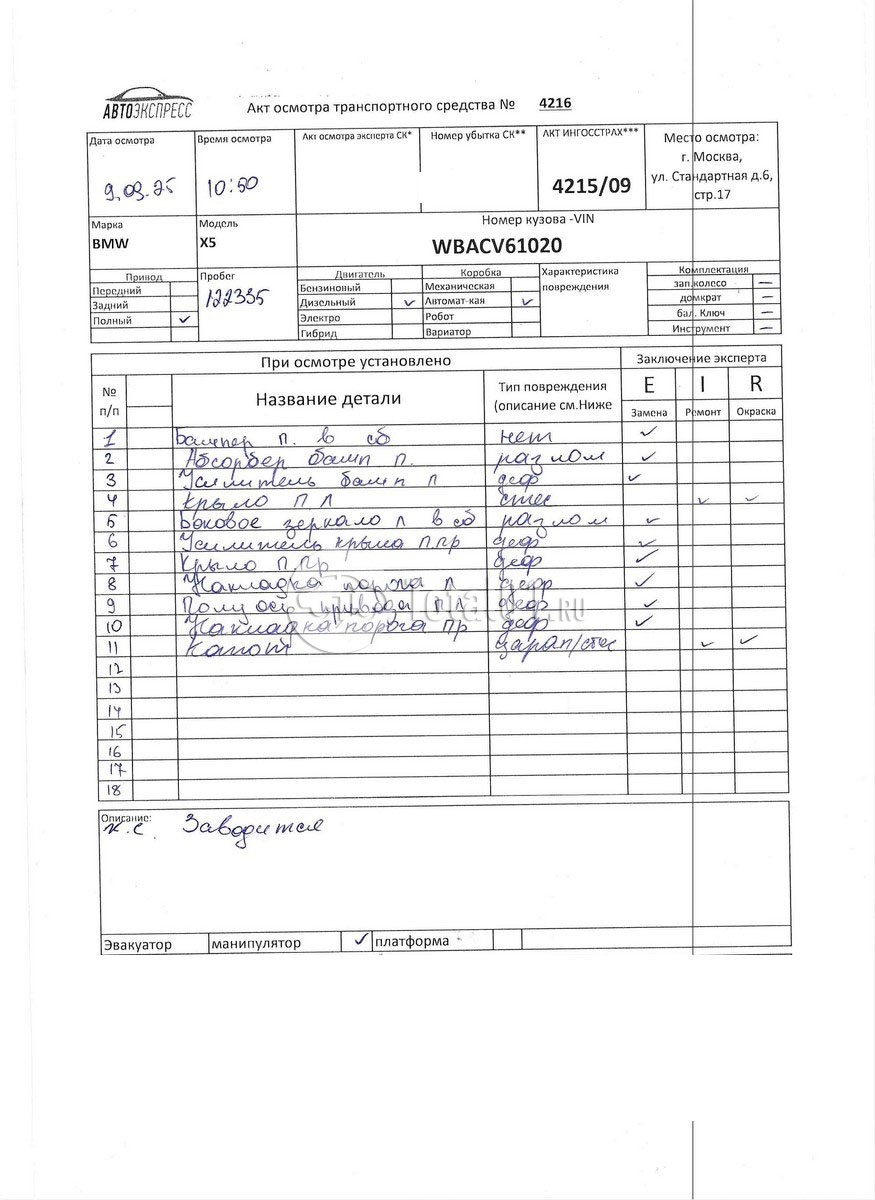 АВТОЭКСПРЕСС
Акт осмотра транспортного средства № 4216
Дата осмотра Время осмотра Акт осмотра эксперта СК* Номер убытка СК** АКТ ИНГОССТРАХ*** Место осмотра:
г. Москва,
9.09.25 10:50 4215/09 ул. Стандартная д.6,
стр.17
Марка Модель Номер кузова -VIN
BMW X5 WBACV61020
Привод Пробег Двигатель Коробка Характеристика Комплектация
Передний Бензиновый Механическая повреждения зап.колесо —
Задний 122335 Дизельный ✓ Автомат-кая ✓ домкрат —
Полный ✓ Электро Робот бал. Ключ —
Гибрид Вариатор Инструмент —
При осмотре установлено Заключение эксперта
№ п/п Название детали Тип повреждения (описание см.Ниже E I R
Замена Ремонт Окраска
1 Бампер п. в сб нет ✓
2 Абсорбер бамп п. разлом ✓
3 Усилитель бамп п деф ✓
4 Крыло п л стес ✓ ✓
5 Боковое зеркало л в сб разлом ✓
6 Усилитель крыла п.пр деф ✓
7 Крыло п.пр деф ✓
8 Накладка порога л деф ✓
9 Полуось привода п л деф ✓
10 Накладка порога пр деф ✓
11 Капот царап/стес ✓ ✓
12
13
14
15
16
17
18
Описание:
н.с. Заводится
Эвакуатор манипулятор ✓ платформа